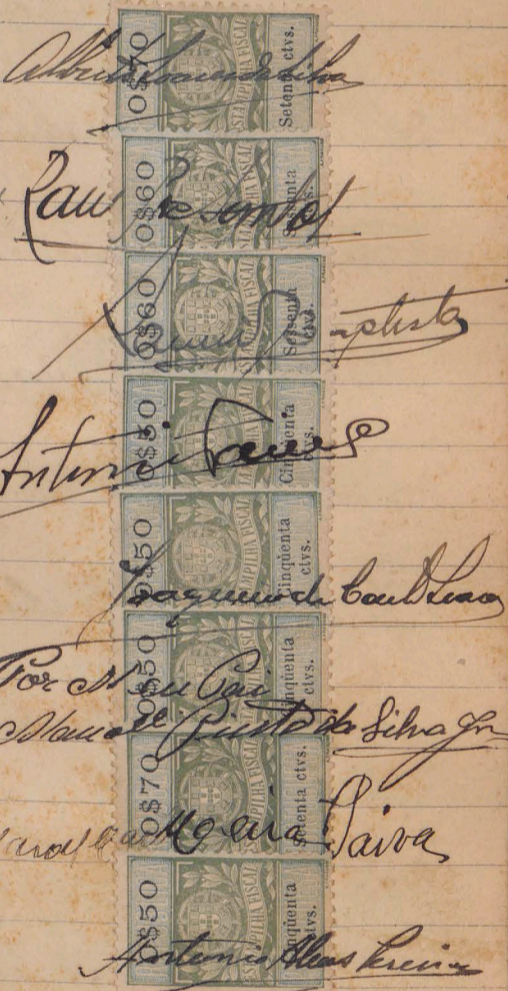 0$70 ESTAMPILHA FISCAL Setenta ctvs.
Alberto da Silva
0$60 ESTAMPILHA FISCAL Sessenta ctvs.
Raul
0$60 ESTAMPILHA FISCAL Sessenta ctvs.
Baptista
0$50 ESTAMPILHA FISCAL Cinqüenta ctvs.
Antonio
0$50 ESTAMPILHA FISCAL Cinqüenta ctvs.
Joaquim do Couto
0$50 ESTAMPILHA FISCAL Cinqüenta ctvs.
Por Meu Pai
Manoel Pinto da Silva Jnr
0$70 ESTAMPILHA FISCAL Setenta ctvs.
Meira Paiva
0$50 ESTAMPILHA FISCAL Cinqüenta ctvs.
Antonio Alves Pereira